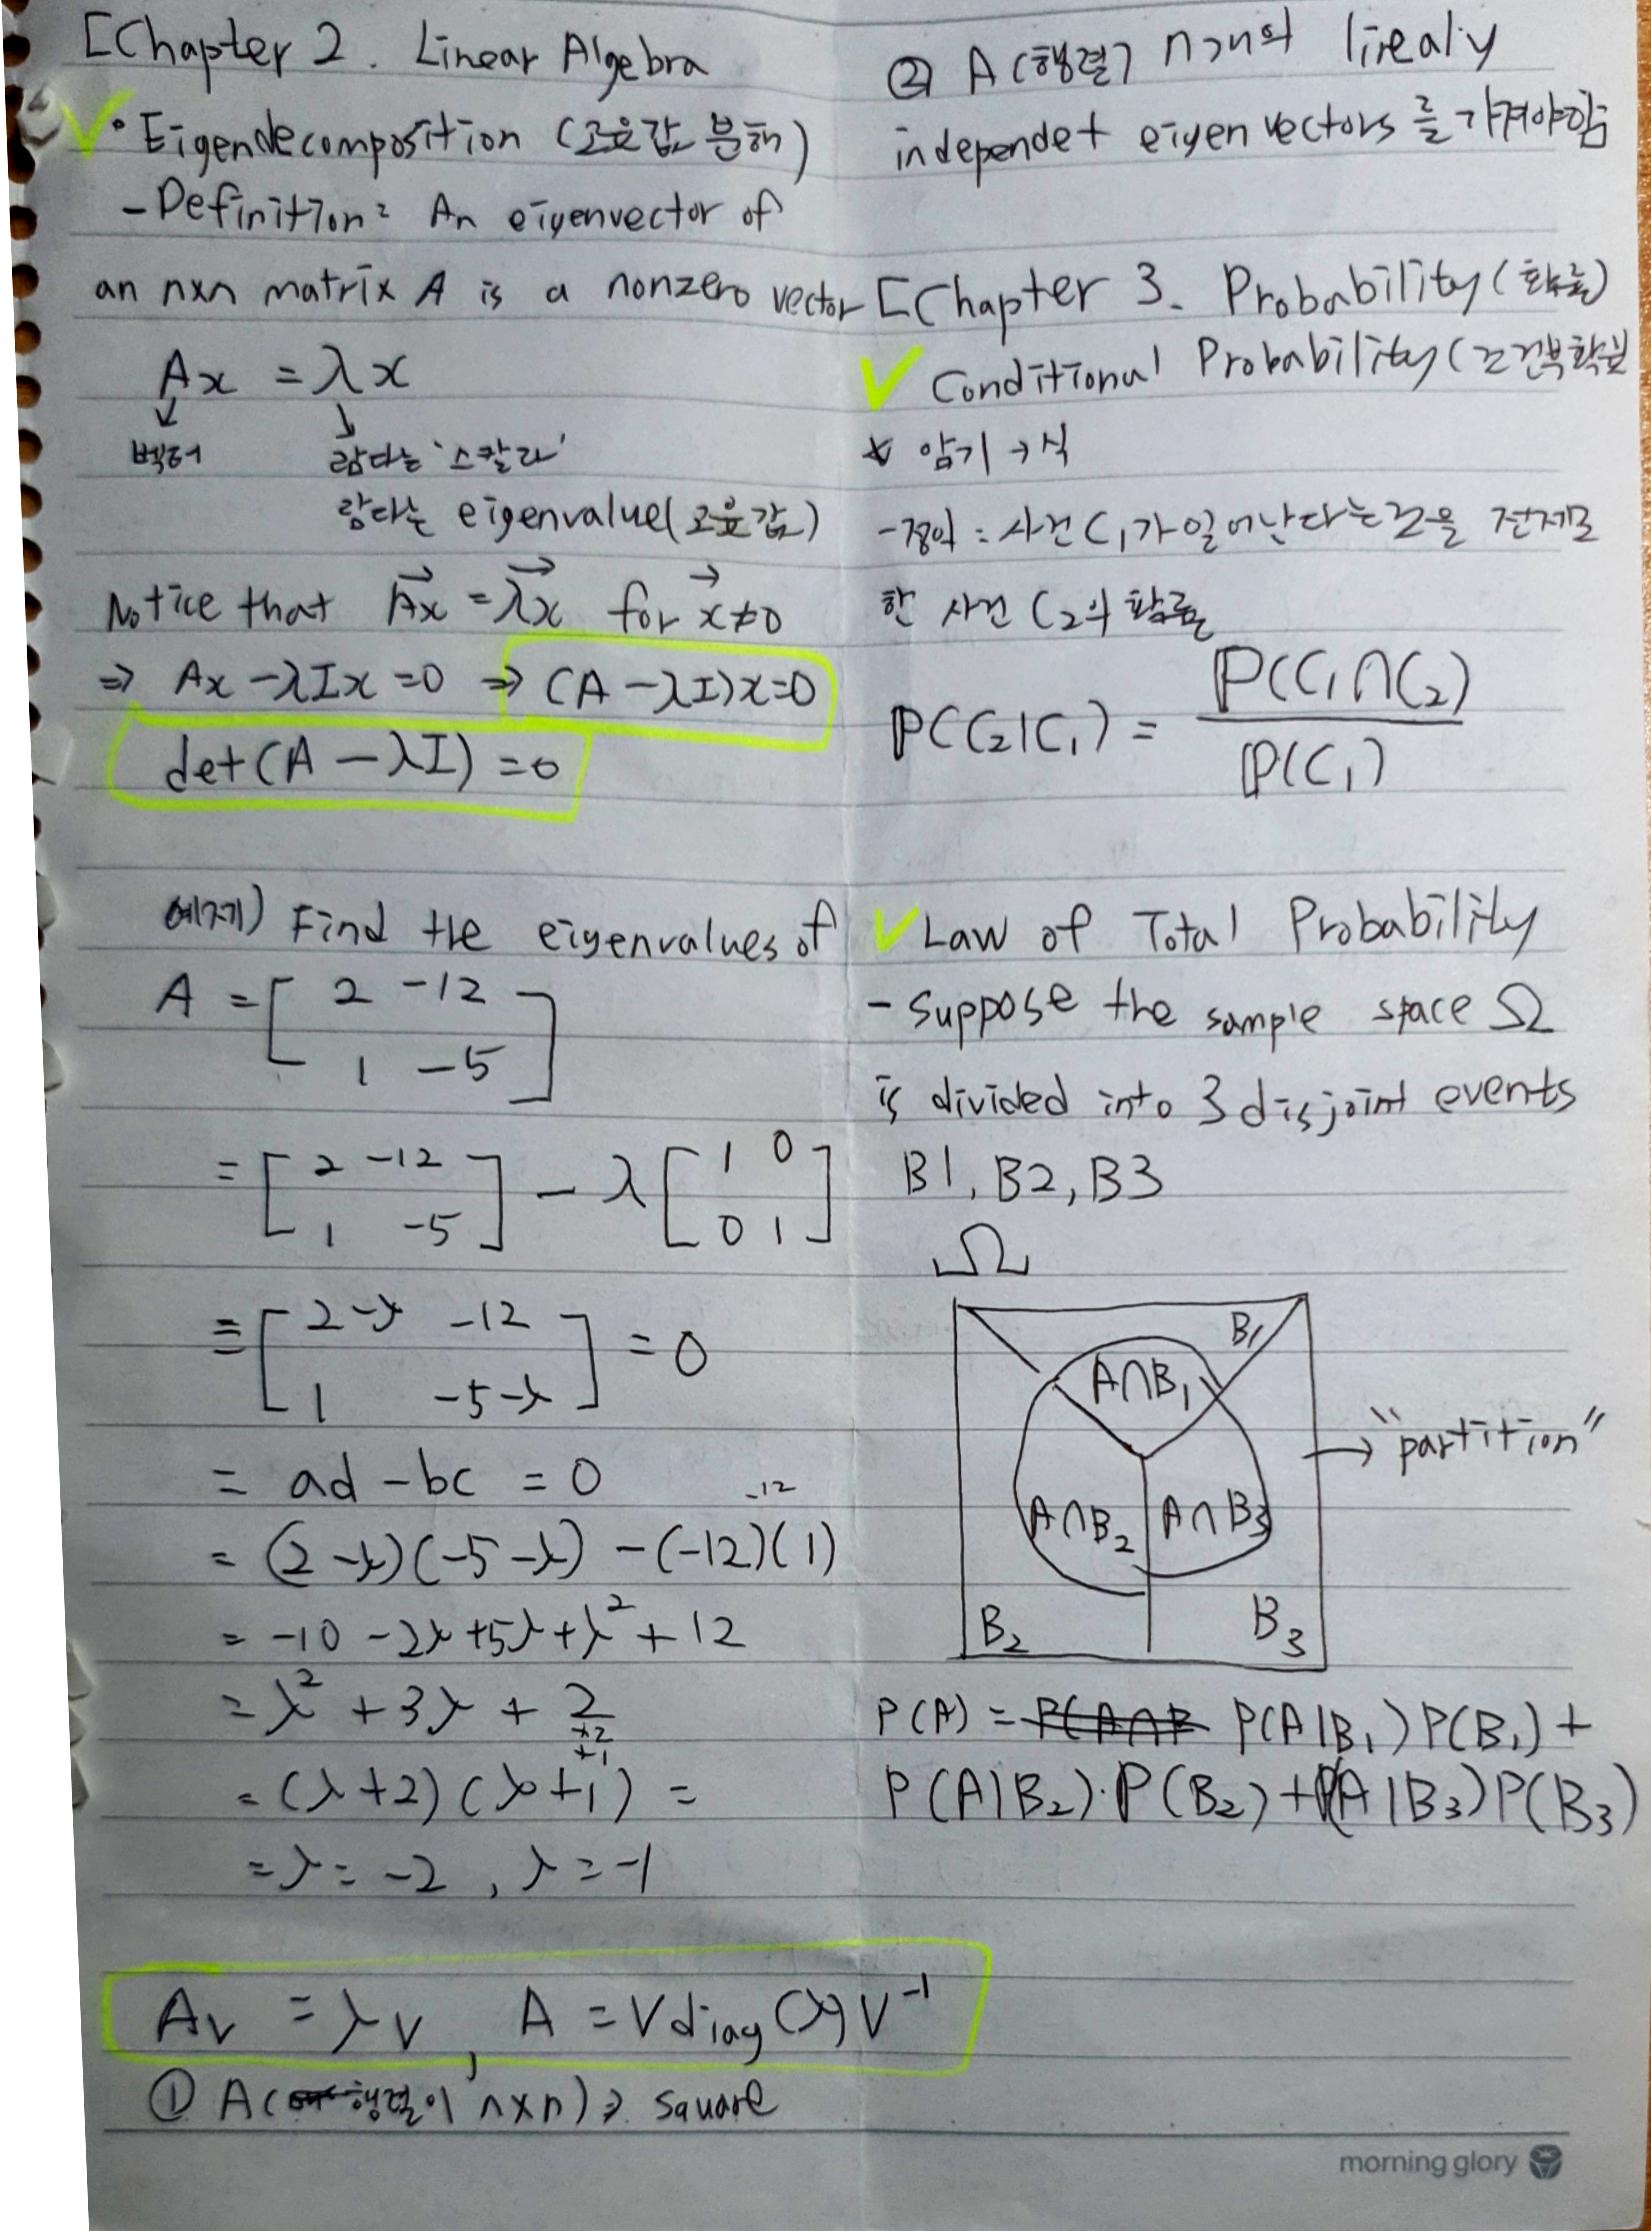 [Chapter 2. Linear Algebra
• Eigendecomposition (고유값 분해)
- Definition: An eigenvector of
an n×n matrix A is a nonzero vector
Ax = λx
벡터 람다는 '스칼라'
람다는 eigenvalue(고유값)
Notice that Ax = λx for x≠0
⇒ Ax - λIx = 0 ⇒ (A - λI)x=0
det(A - λI) = 0
예제) Find the eigenvalues of
A = [ 2 -12
1 -5 ]
= [ 2 -12
1 -5 ] - λ [ 1 0
0 1 ]
= [ 2-λ -12
1 -5-λ ] = 0
= ad - bc = 0
-12
= (2-λ)(-5-λ) - (-12)(1)
= -10 - 2λ + 5λ + λ² + 12
= λ² + 3λ + 2
+2
+1
= (λ+2)(λ+1) =
= λ = -2, λ = -1
Av = λv, A = V diag(λ) V⁻¹
① A(행렬이 n×n) ⇒ square
② A(행렬) n>n의 linealy
independet eigenvectors를 가져야함
[Chapter 3. Probability(확률)
Conditional Probability(조건부확률
* 암기 → 식
- 정의: 사건 C₁가 일어난다는것을 전제로
한 사건 C₂의 확률
P(C₂|C₁) = P(C₁∩C₂) / P(C₁)
Law of Total Probability
- Suppose the sample space Ω
is divided into 3 disjoint events
B1, B2, B3
Ω
B₁
A∩B₁
→ "partition"
A∩B₂ A∩B₃
B₂ B₃
P(A) = P(A∩B P(A|B₁)P(B₁) +
P(A|B₂)·P(B₂) + P(A|B₃)P(B₃)
morning glory